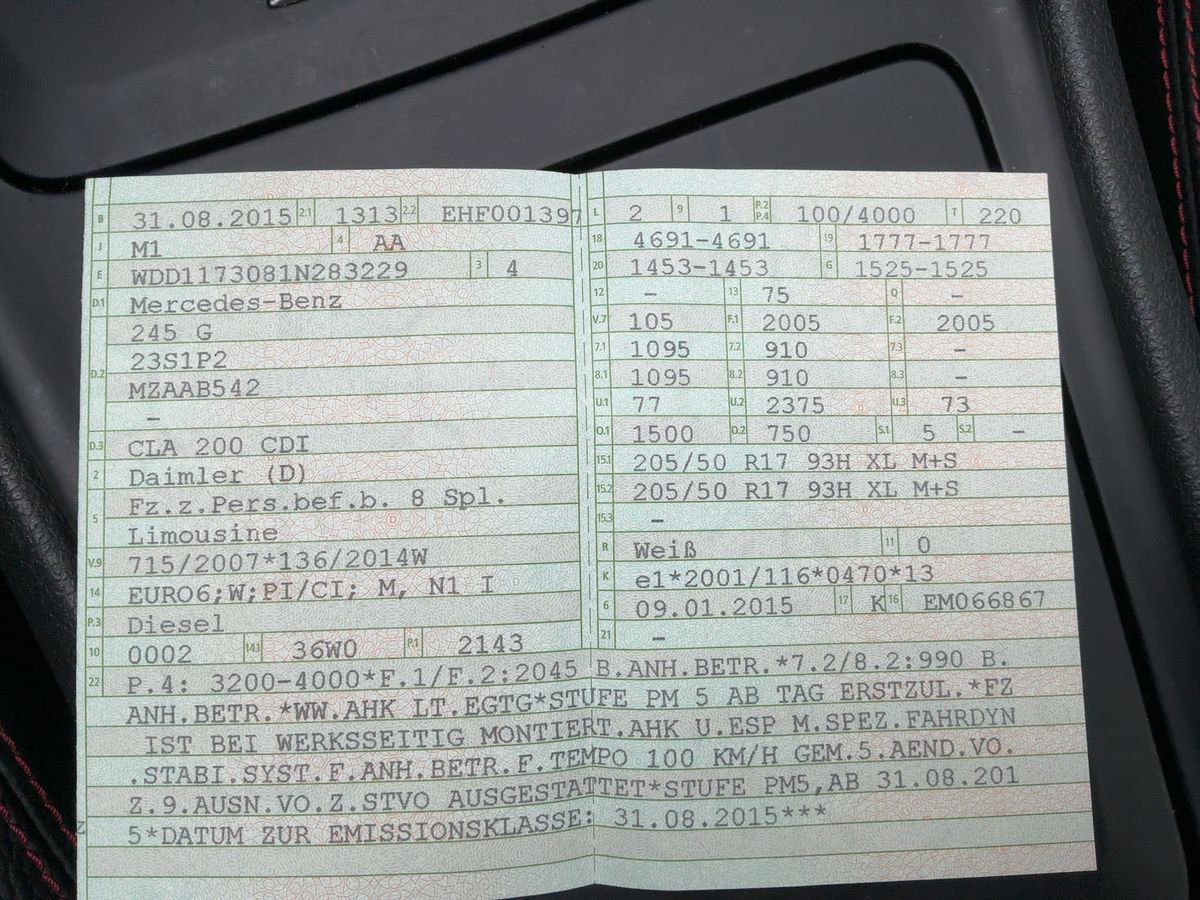 B 31.08.2015 2.1 1313 2.2 EHF001397
J M1 4 AA
E WDD1173081N283229 3 4
D.1 Mercedes-Benz
245 G
D.2 23S1P2
MZAAB542
–
D.3 CLA 200 CDI
2 Daimler (D)
Fz.z.Pers.bef.b. 8 Spl.
5 Limousine
V.9 715/2007*136/2014W
14 EURO6;W;PI/CI; M, N1 I
P.3 Diesel
10 0002 14.1 36W0 P.1 2143
L 2 9 1 P.2 P.4 100/4000 T 220
18 4691-4691 19 1777-1777
20 1453-1453 G 1525-1525
12 – 13 75 Q –
V.7 105 F.1 2005 F.2 2005
7.1 1095 7.2 910 7.3 –
8.1 1095 8.2 910 8.3 –
U.1 77 U.2 2375 U.3 73
O.1 1500 O.2 750 S.1 5 S.2 –
15.1 205/50 R17 93H XL M+S
15.2 205/50 R17 93H XL M+S
15.3 –
R Weiß 11 0
K e1*2001/116*0470*13
6 09.01.2015 17 K 16 EM066867
21 –
22 P.4: 3200-4000*F.1/F.2:2045 B.ANH.BETR.*7.2/8.2:990 B.
ANH.BETR.*WW.AHK LT.EGTG*STUFE PM 5 AB TAG ERSTZUL.*FZ
IST BEI WERKSSEITIG MONTIERT.AHK U.ESP M.SPEZ.FAHRDYN
.STABI.SYST.F.ANH.BETR.F.TEMPO 100 KM/H GEM.5.AEND.VO.
Z.9.AUSN.VO.Z.STVO AUSGESTATTET*STUFE PM5,AB 31.08.201
5*DATUM ZUR EMISSIONSKLASSE: 31.08.2015***